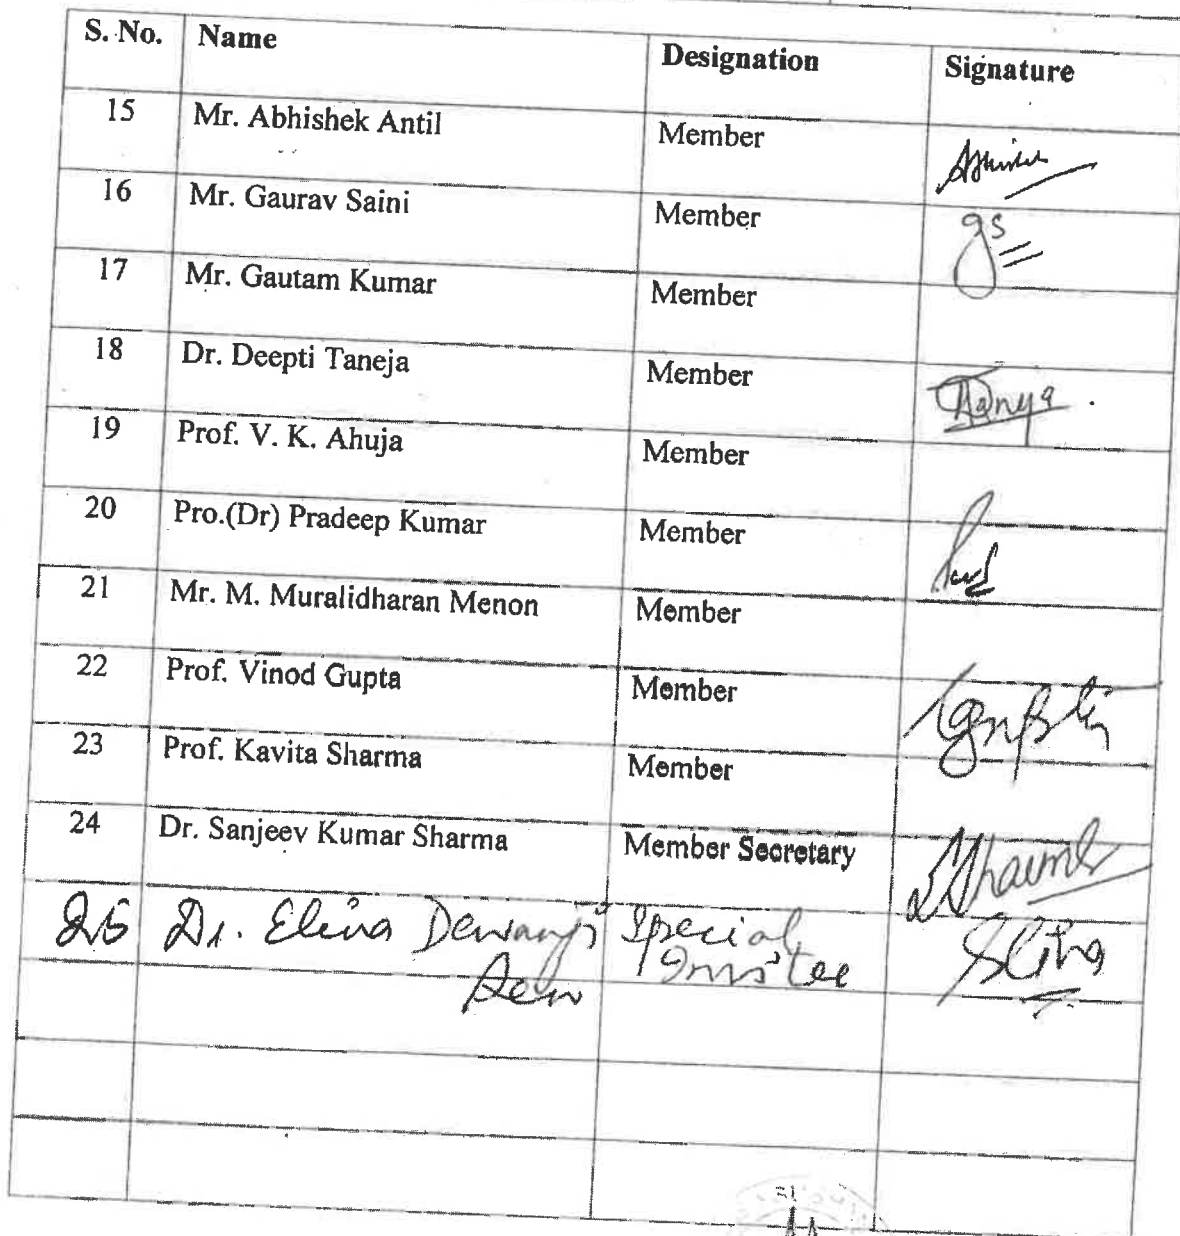 S. No. Name Designation Signature
15 Mr. Abhishek Antil Member Abhishek
16 Mr. Gaurav Saini Member gs
17 Mr. Gautam Kumar Member
18 Dr. Deepti Taneja Member Taneja
19 Prof. V. K. Ahuja Member
20 Pro.(Dr) Pradeep Kumar Member
21 Mr. M. Muralidharan Menon Member
22 Prof. Vinod Gupta Member
23 Prof. Kavita Sharma Member
24 Dr. Sanjeev Kumar Sharma Member Secretary
25 Dr. Elina Dewanji Special
Invitee